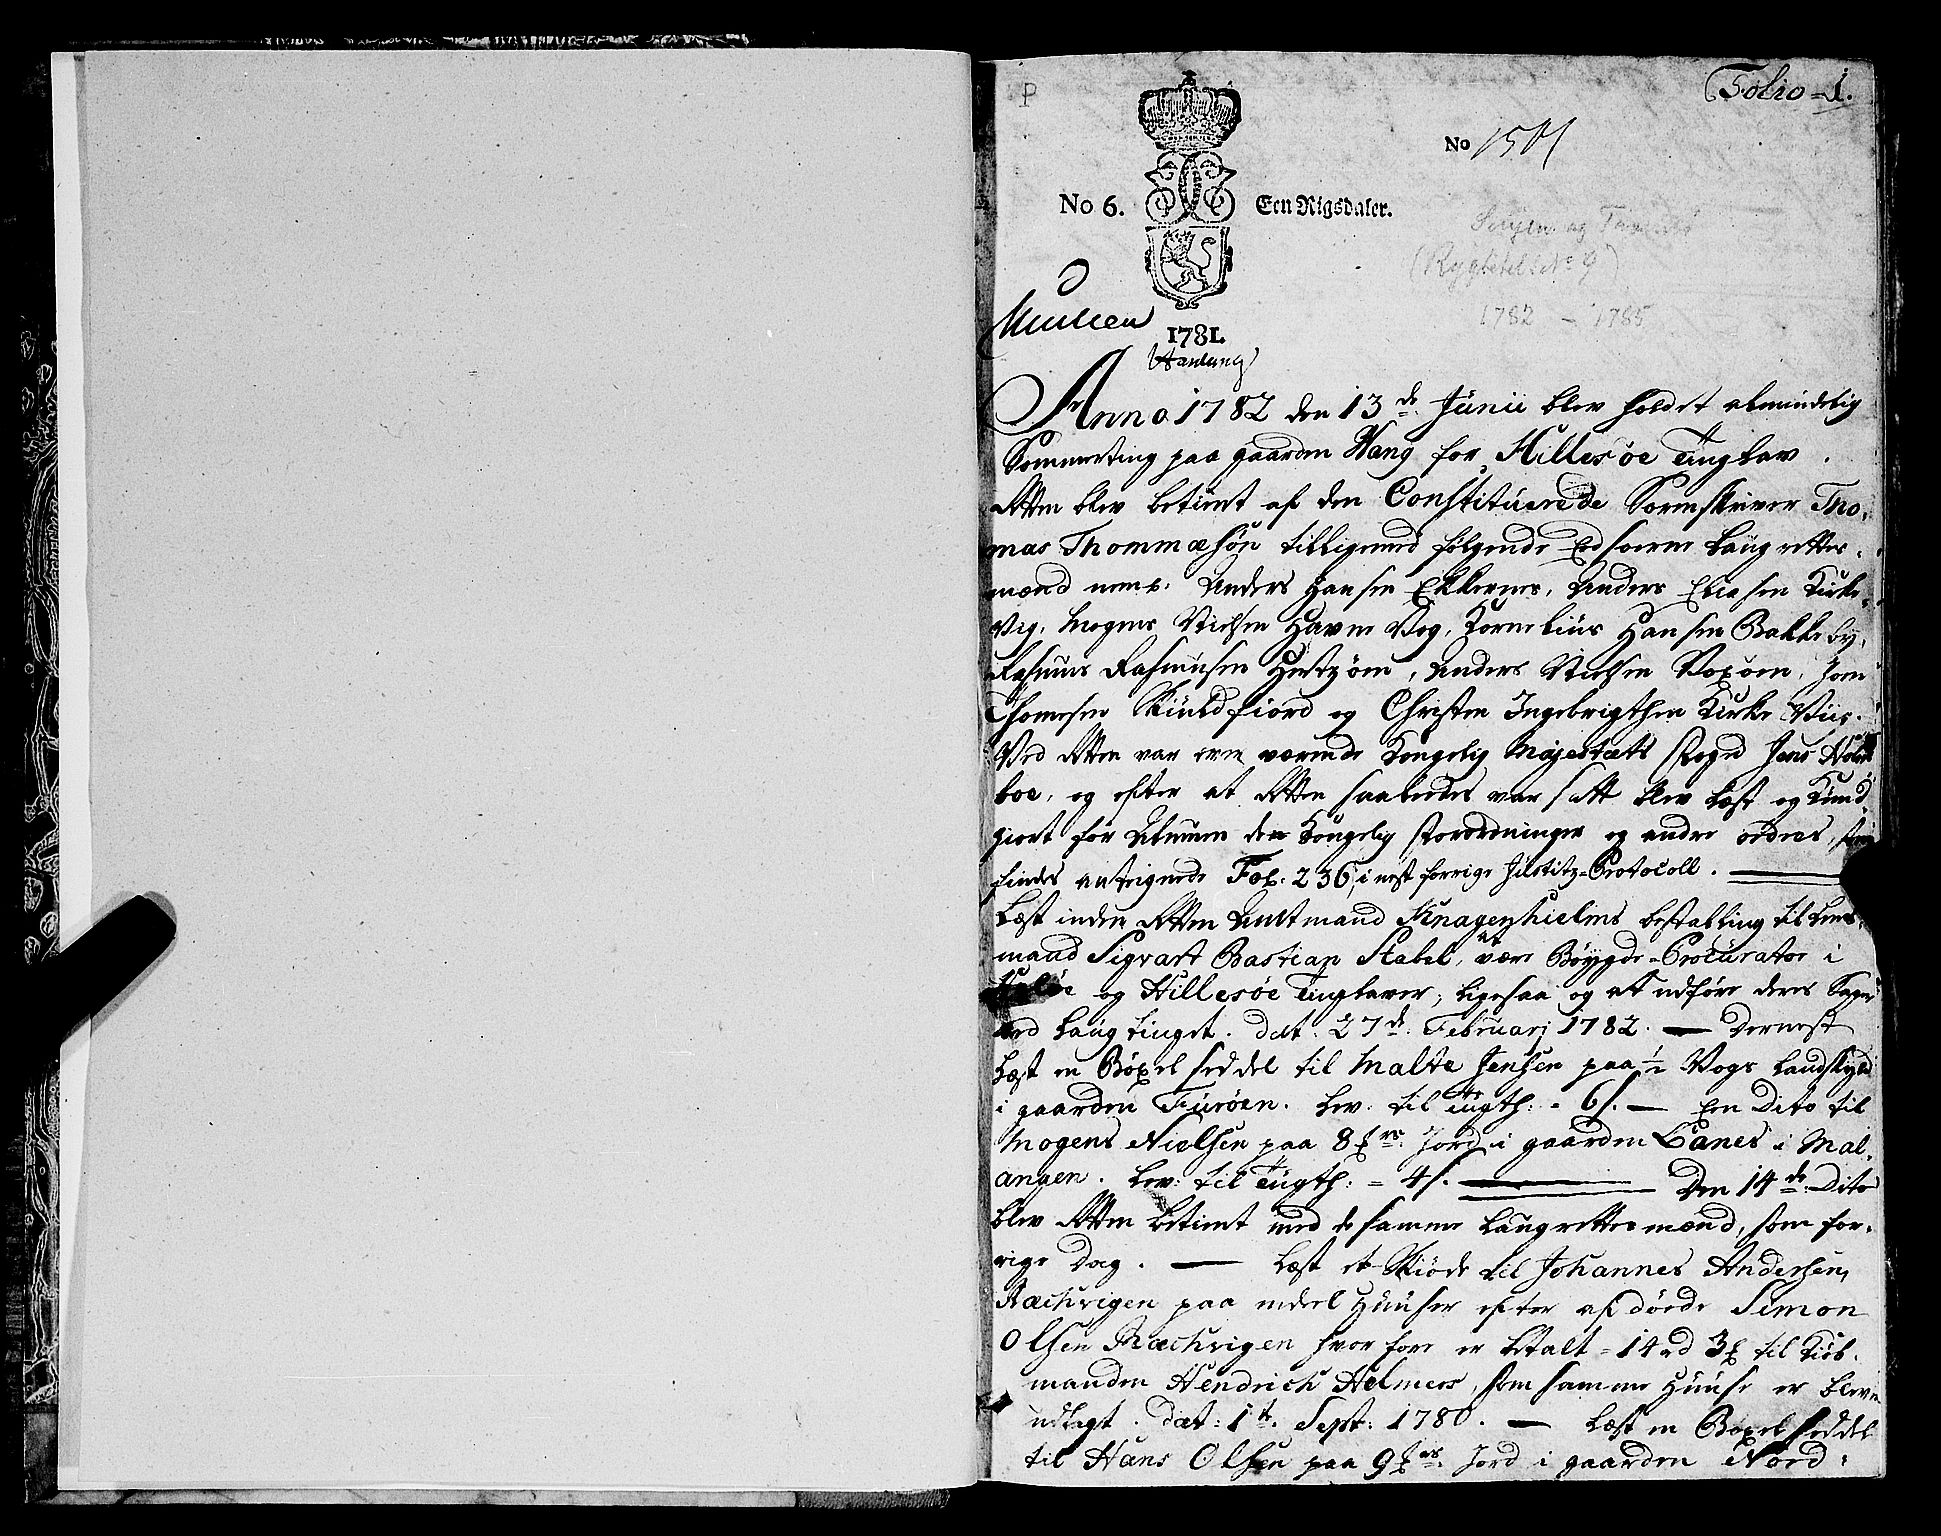 P
Folio 1.
No 1501
No 6. Een Rigsdaler.
Senjen og Tromsø
1782 - 1785
1781.
Anno 1782 den 13de Junii blev holdet almindelig
Sommerting paa gaarden Wang for Hillesøe Tinglav.
Retten blev betient af den Constituerede Sorenskriver Tho-
mas Thommesøn tilligemed følgende Eedsorne Laugrettes-
mænd neml. Anders Hansen Ekkernes, Anders Eliasen Kirke-
Vig, Mogens Nielsen Havne Vog, Kornelius Hansen Bakkeby,
Rasmus Rasmusen, Anders Nielsen, Joen
Thomesen Skiuldfiord og Christen Ingebrigtsen Kirke Viig.
Ved Retten var over værende Kongelig Mayestæts Foged Jens Holm-
boe, og efter at Retten saaledes var satt blev læst og Kund-
giort for Almuen de Kongelig Forordninger og andre ordres, som
findes antegnede Fol. 236, i nest forrige Justitz-Protocoll.
Læst inden Retten Amtmand Knagenhielms bestalling til Lens-
mand Sigvart Bastian Stabel, at være Bøygde-Procurator i
og Hillesøe Tinglaver, ligesaa og at udføre deres Sager
ved Laugtinget. Dat: 27de Februarj 1782. — Dernest
Læst en Bøxel seddel til Malte Jensen paa 1/2 Vogs Landskyld
i gaarden Furøen. Lev: til Tugth: = 6 s. — Een Dito til
Mogens Nielsen paa 8 rs. Jord i gaarden Lanes i Mal-
angen. Lev: til Tugth: = 4 s. — Den 14de Dito
blev Retten betient med de samme Laugrettesmænd, som for-
rige Dag. — Læst et Skiøde til Johannes Andersen,
Rachvigen paa endeel Huuser efter afdøde Simon
Olsen Rachvigen hvorfore er betalt = 14 rd 3 til Kiøb-
manden Hendrich Helmers, som samme Huuse er bleven
udlagt. Dat: 1te Sept: 1780. — Læst en Bøxel seddel
til Hans Olsen paa 9 rs. Jord i gaarden Nord-